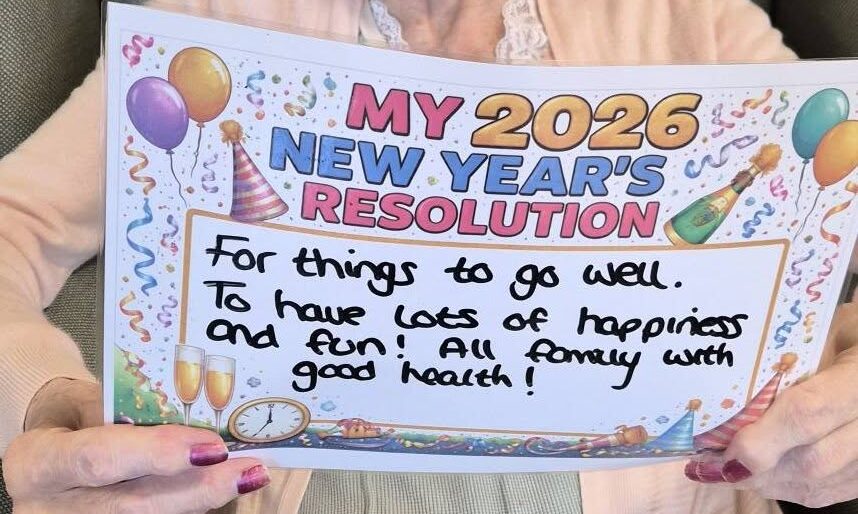 MY 2026
NEW YEAR'S
RESOLUTION
For things to go well.
To have lots of happiness
and fun! All family with
good health!